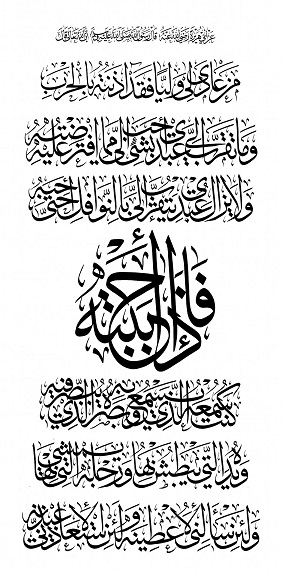 عن أبي هريرة رضي الله عنه قال رسول الله صلى الله عليه وسلم إن الله تعالى قال
من عادى لي وليا فقد آذنته بالحرب
وما تقرب إلي عبدي بشيء أحب إلي مما افترضته عليه
ولا يزال عبدي يتقرب إلي بالنوافل حتى أحبه
فإذا أحببته
كنت سمعه الذي يسمع به وبصره الذي يبصر به
ويده التي يبطش بها ورجله التي يمشي بها
ولئن سألني لأعطينه ولئن استعاذني لأعيذنه